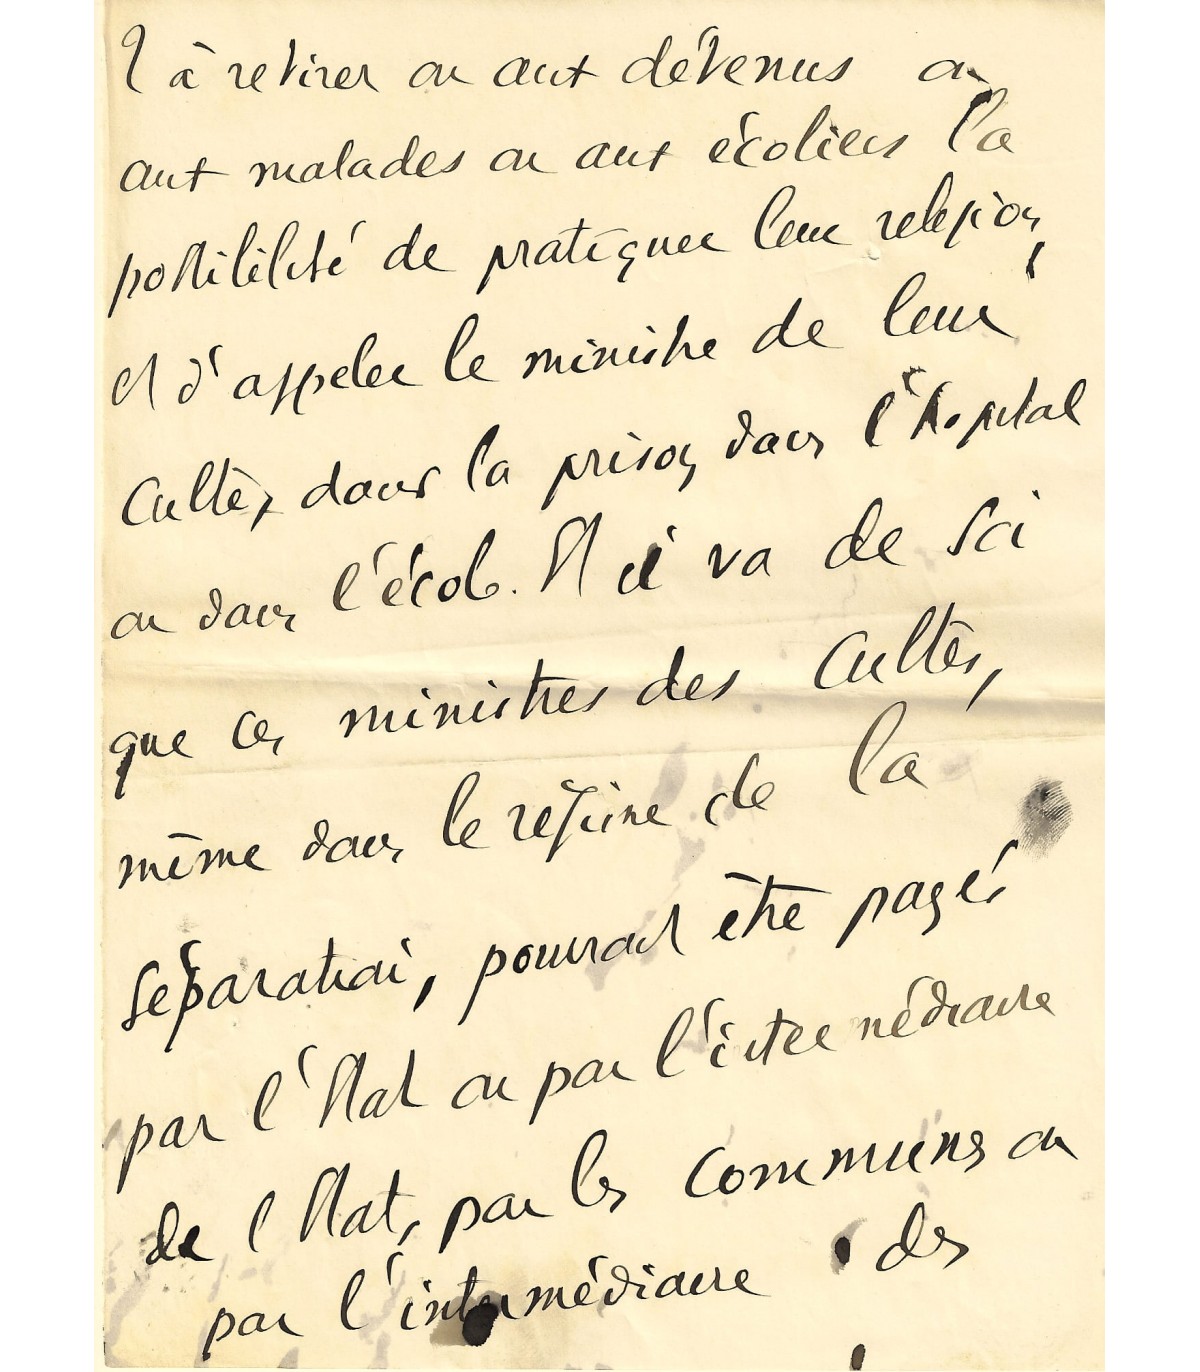 à retirer ou aux détenus ou
aux malades ou aux écoliers la
possibilité de pratiquer leur religion,
et d'appeler le ministre de leur
culte, dans la prison, dans l'hopital
ou dans l'école. Il va de soi
que ces ministres des cultes,
même dans le régime de la
séparation, pourront être payés
par l'Etat ou par l'intermédiaire
de l'Etat, par les communes ou
par l'intermédiaire des